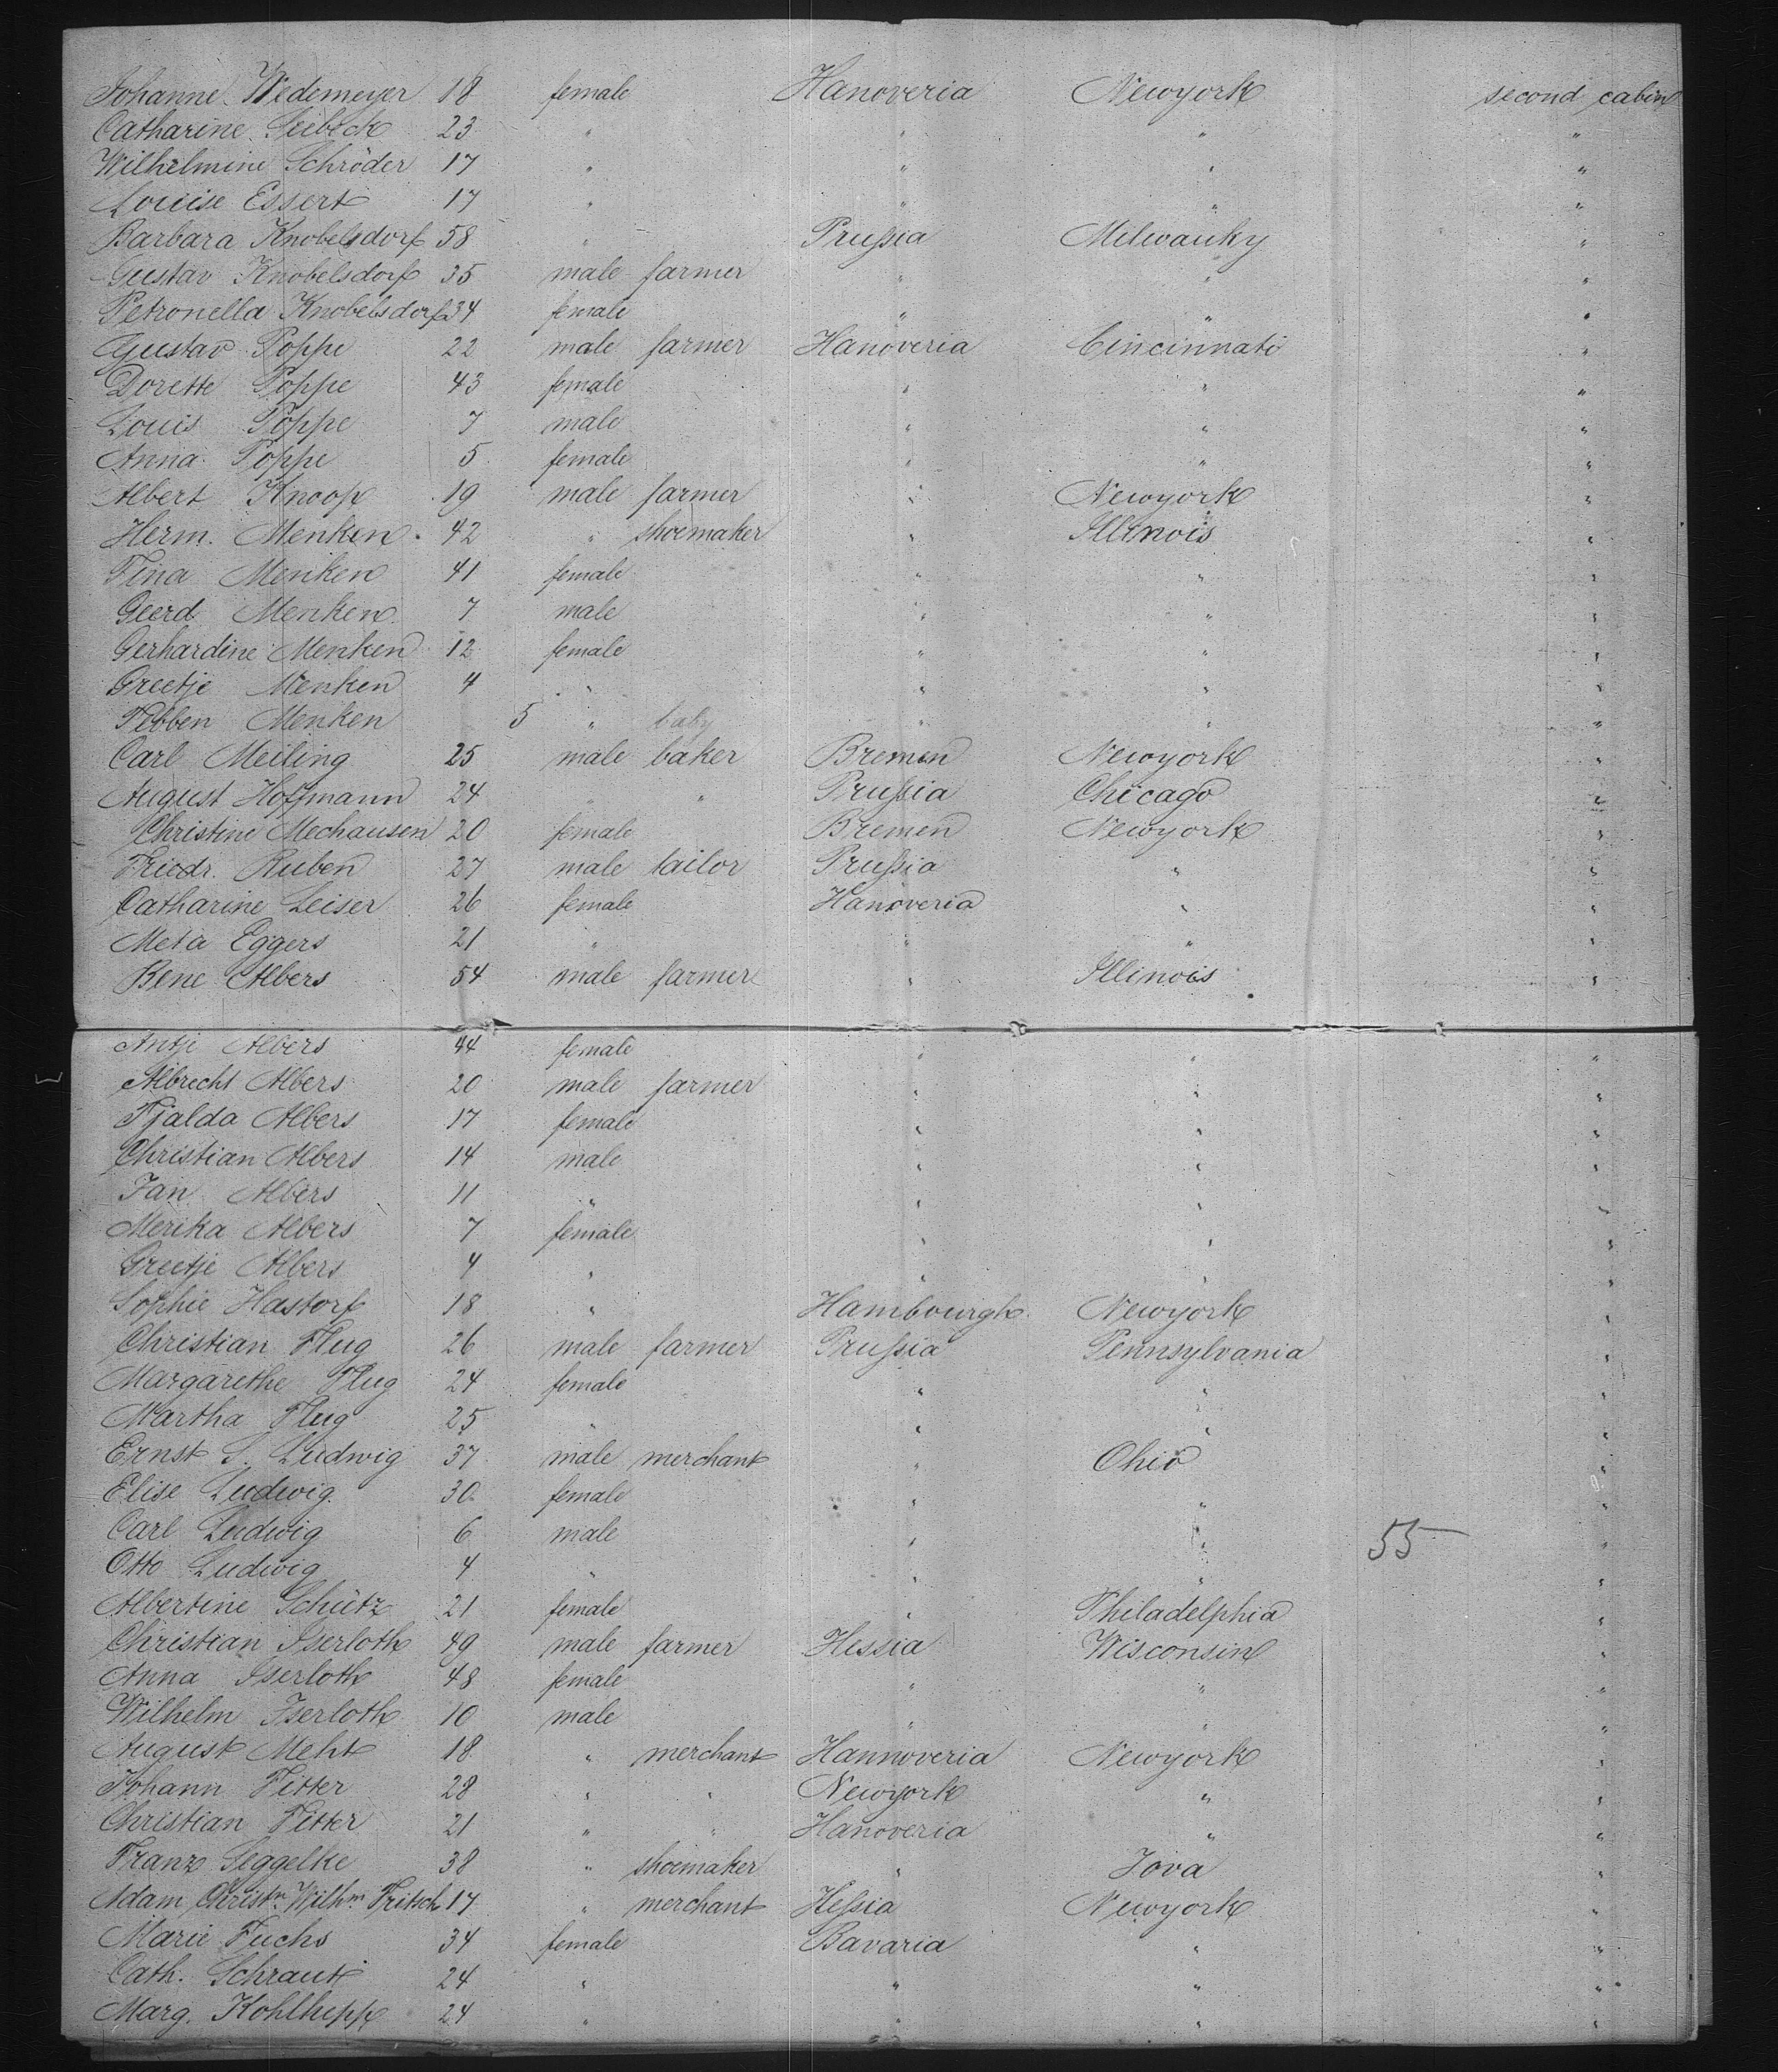 Johanne Wedemeyer 18 female Hanoveria Newyork second cabin
Catharine Seibeck 23 " " " "
Wilhelmine Schröder 17 " " " "
Louise Essert 17 " " " "
Barbara Knobelsdorf 58 " Prussia Milwauky "
Gustav Knobelsdorf 35 male farmer " " "
Petronella Knobelsdorf 34 female " " "
Gustav Poppe 22 male farmer Hanoveria Cincinnati "
Dorette Poppe 43 female " " "
Louis Poppe 7 male " " "
Anna Poppe 5 female " " "
Albert Knoop 19 male farmer " Newyork "
Herm. Menken 42 " shoemaker " Illinois "
Tina Menken 41 female " " "
Geerd Menken 7 male " " "
Gerhardine Menken 12 female " " "
Greetje Menken 4 " " " "
Tebben Menken 5 " baby " " "
Carl Meiling 25 male baker Bremen Newyork "
August Hoffmann 24 " " Prussia Chicago "
Christine Mechausen 20 female Bremen Newyork "
Friedr. Ruben 27 male tailor Prussia " "
Catharine Leiser 26 female Hanoveria " "
Meta Eggers 21 " " " "
Bene Albers 54 male farmer " Illinois "
Antje Albers 44 female " " "
Albrecht Albers 20 male farmer " " "
Tjalda Albers 17 female " " "
Christian Albers 14 male " " "
Jan Albers 11 " " " "
Merika Albers 7 female " " "
Greetje Albers 4 " " " "
Sophie Hastorf 18 " Hambourgh Newyork "
Christian Flug 26 male farmer Prussia Pennsylvania "
Margarethe Flug 24 female " " "
Martha Flug 25 " " " "
Ernst S. Ludwig 37 male merchant " Ohio "
Elise Ludwig 30 female " " "
Carl Ludwig 6 male " " 55 "
Otto Ludwig 4 " " " "
Albertine Schütz 21 female " Philadelphia "
Christian Iserloth 49 male farmer Hessia Wisconsin "
Anna Iserloth 48 female " " "
Wilhelm Iserloth 10 male " " "
August Meht 18 " merchant Hannoveria Newyork "
Johann Fitter 28 " " Newyork " "
Christian Fitter 21 " " Hanoveria " "
Franz Seggelke 38 " shoemaker " Jova "
Adam Christn. Wilhm. Fritsch 17 " merchant Hessia Newyork "
Marie Fuchs 34 female Bavaria " "
Cath. Schraut 24 " " " "
Marg. Kohlhepp 24 " " " "